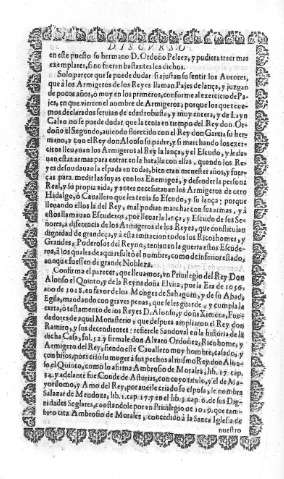 DISCVRSO
en este puesto su hermano D. Ordoño Pelaez, y pudiera traer mas
exemplares, si no fueran bastantes los dichos.
Solo parece que se puede dudar si ajustan su sentir los Autores,
que à los Armigeros de los Reyes llaman Pajes de lança, y juzgan
de pocos años, o muy en los primeros, conforme al exercicio de Pa-
jes, en que vinieron el nombre de Armigeros; porque los que tene-
mos declarados serian de edad robusta, y muy entera, y de Layn
Calvo no se puede dudar que la tenia en tiempo del Rey don Or-
doño el Segundo, auiendo florecido con el Rey don Garcia su her
mano, y con el Rey don Alonso su padre, y si marchando los exer-
citos lleuauan los Armigeros al Rey la lança, y el Escudo, y le da-
uan estas armas para entrar en la batalla con ellas, quando los Re-
yes desnudauan la espada no todo, bien era menester años, y fuer-
ças para medir las suyas con los Enemigos, y defender la persona
Real, y su propia vida, y antes necessitauan los Armigeros de otro
Hidalgo, ò Cauallero que les tenia su Escudo, y su lança; porque
lleuando ellos la del Rey, mal podian marchar con sus armas, y à
estos llamauan Escuderos, por lleuar la lança, y Escudo de sus Se-
ñores, à diferencia de los Armigeros de los Reyes, que constituian
dignidad de grandeça, y à esta imitacion todos los Ricoshomes, y
Grandes, y Poderosos del Reyno, tenian en la guerra estos Escude-
ros, à los quales de aqui resultò el nombre, como de infimo estado,
aunque fuessen de gran de Nobleza.
Confirma el parecer, que lleuamos, vn Priuilegio del Rey Don
Alonso el Quinto, y de la Reyna doña Elvira, por la Era de 1056.
año de 1018. en fauor de los Monges de Sahagum, y de su Abad,
Egila, mandando con graues penas, que se les guarde, y cumpla la
carta, o testamento de los Reyes D. Alonso, y doña Ximena, Fun-
dadores de aquel Monasterio, que despues ampliaron el Rey don
Ramiro, y sus decendientes: refierele Sandoval en la historia de la
dicha Casa, fol. 52. y firmale don Alvaro Ordoñez, Ricohome, y
Armigero del Rey, siendo este Cauallero muy hombre, casado, y
con hijos, pòr cuya muger à sus pechos al mismo Rey don Alon-
so el Quinto, como lo afirma Ambrosio de Morales, lib. 17. cap.
34. y adelante fue Conde de Asturias, con cuyo titulo, y el de Ma-
yordomo, y Amo del Rey, por auerle criado su esposa, le nombra
Salazar de Mendoza, lib. 1. cap. 17. y en el lib. 2. cap. 6. de sus Dig-
nidades Seglares, costandole por vn Priuilegio de 1019. que tam-
bien cita Ambrosio de Morales, concedido à la Santa Iglesia de
nuestro